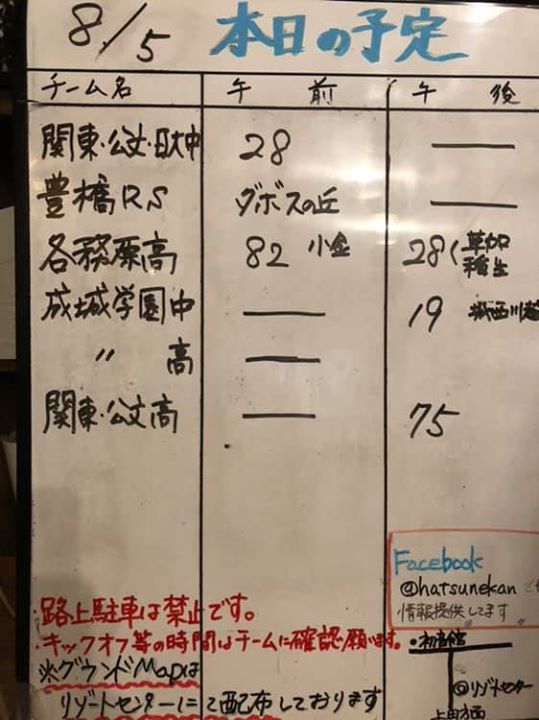 8/5 本日の予定
チーム名 午前 午後
関東・公文・日大中 28 ―
豊橋RS ダボスの丘 ―
各務原高 82 小金 28 ( 草加 稲生
成城学園中 ― 19 城西川越
〃 高 ―
関東・公文高 ― 75
Facebook
@hatsunekan
情報提供してます
・路上駐車は禁止です。
・キックオフ等の時間はチームに確認願います。
※グランドMapは
リゾートセンターにて配布しております
・初音館
◎リゾートセンター
上田方面